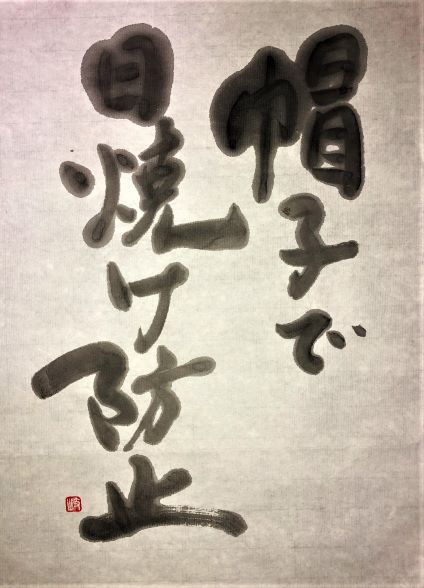 帽子で
日焼け防止